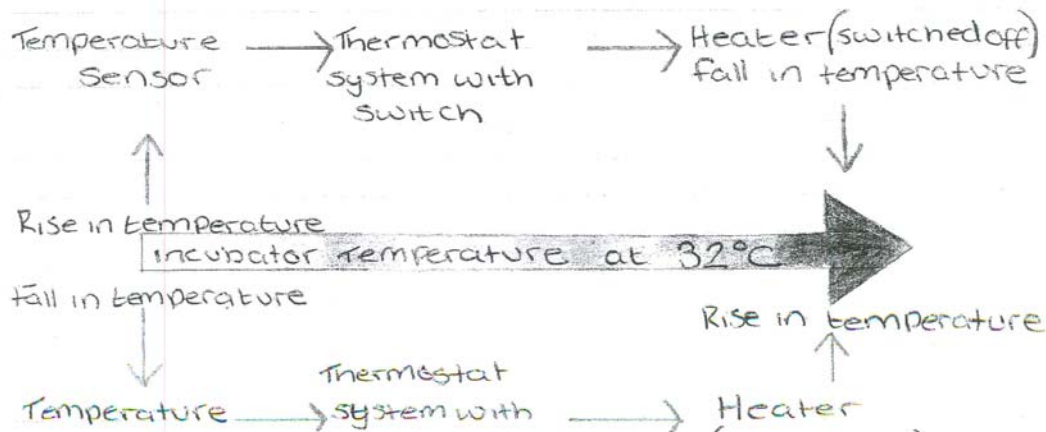 Temperature Sensor
Thermostat system with switch
Heater (switched off) fall in temperature
Rise in temperature
incubator Temperature at 32°C
fall in temperature
Rise in temperature
Temperature
Thermostat system with
Heater